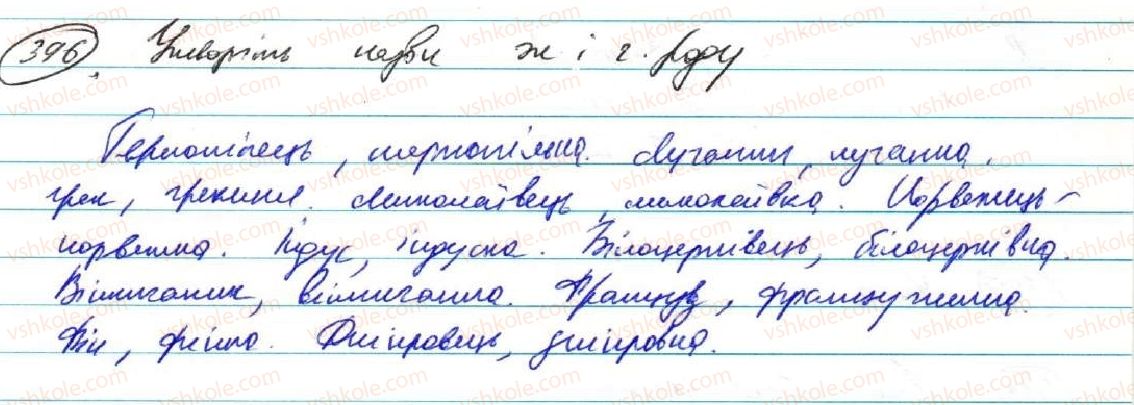 396 Утворіть назви ж і ч. роду
Тернопілець, тернопілька. Лучанин, лучанка.
грек, грекиня. Миколаївець, миколаївка. Норвежець -
норвежка. Індус, індуска. Білоцерківець, білоцерківка.
Вінничанин, вінничанка. Француз, француженка.
Фін, фінка. Дніпровець, дніпровка.